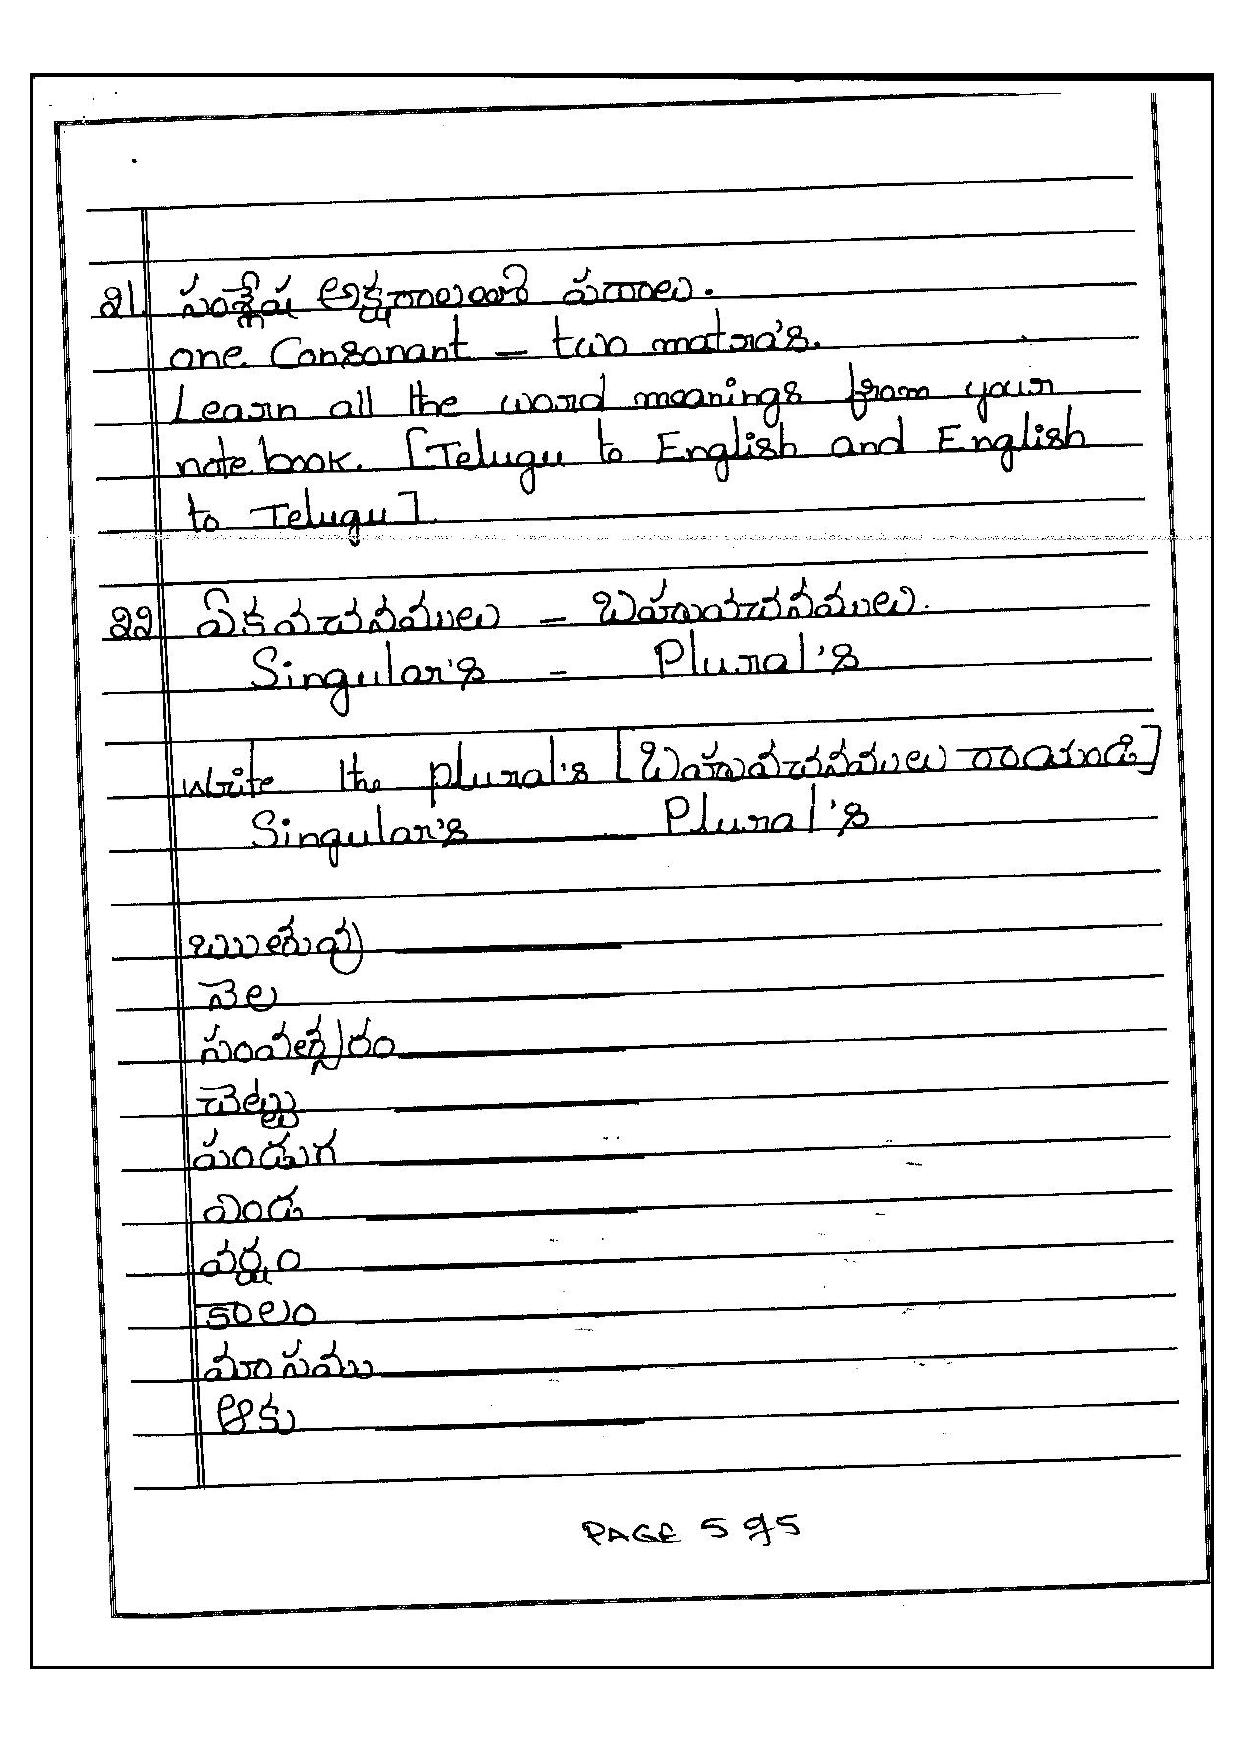 21. సంశ్లేష అక్షరాలయొక్క పదాలు.
one Consonant – two matra's.
Learn all the word meanings from your
note book. [Telugu to English and English
to Telugu].
22 ఏకవచనములు – బహువచనములు.
Singular's – Plural's
write the plural's [బహువచనములు రాయండి]
Singular's Plural's
ఋతువు
నెల
సంవత్సరం
చెట్టు
పండుగ
ఎండ
వర్షం
కాలం
మాసము
ఆకు
PAGE 5 of 5